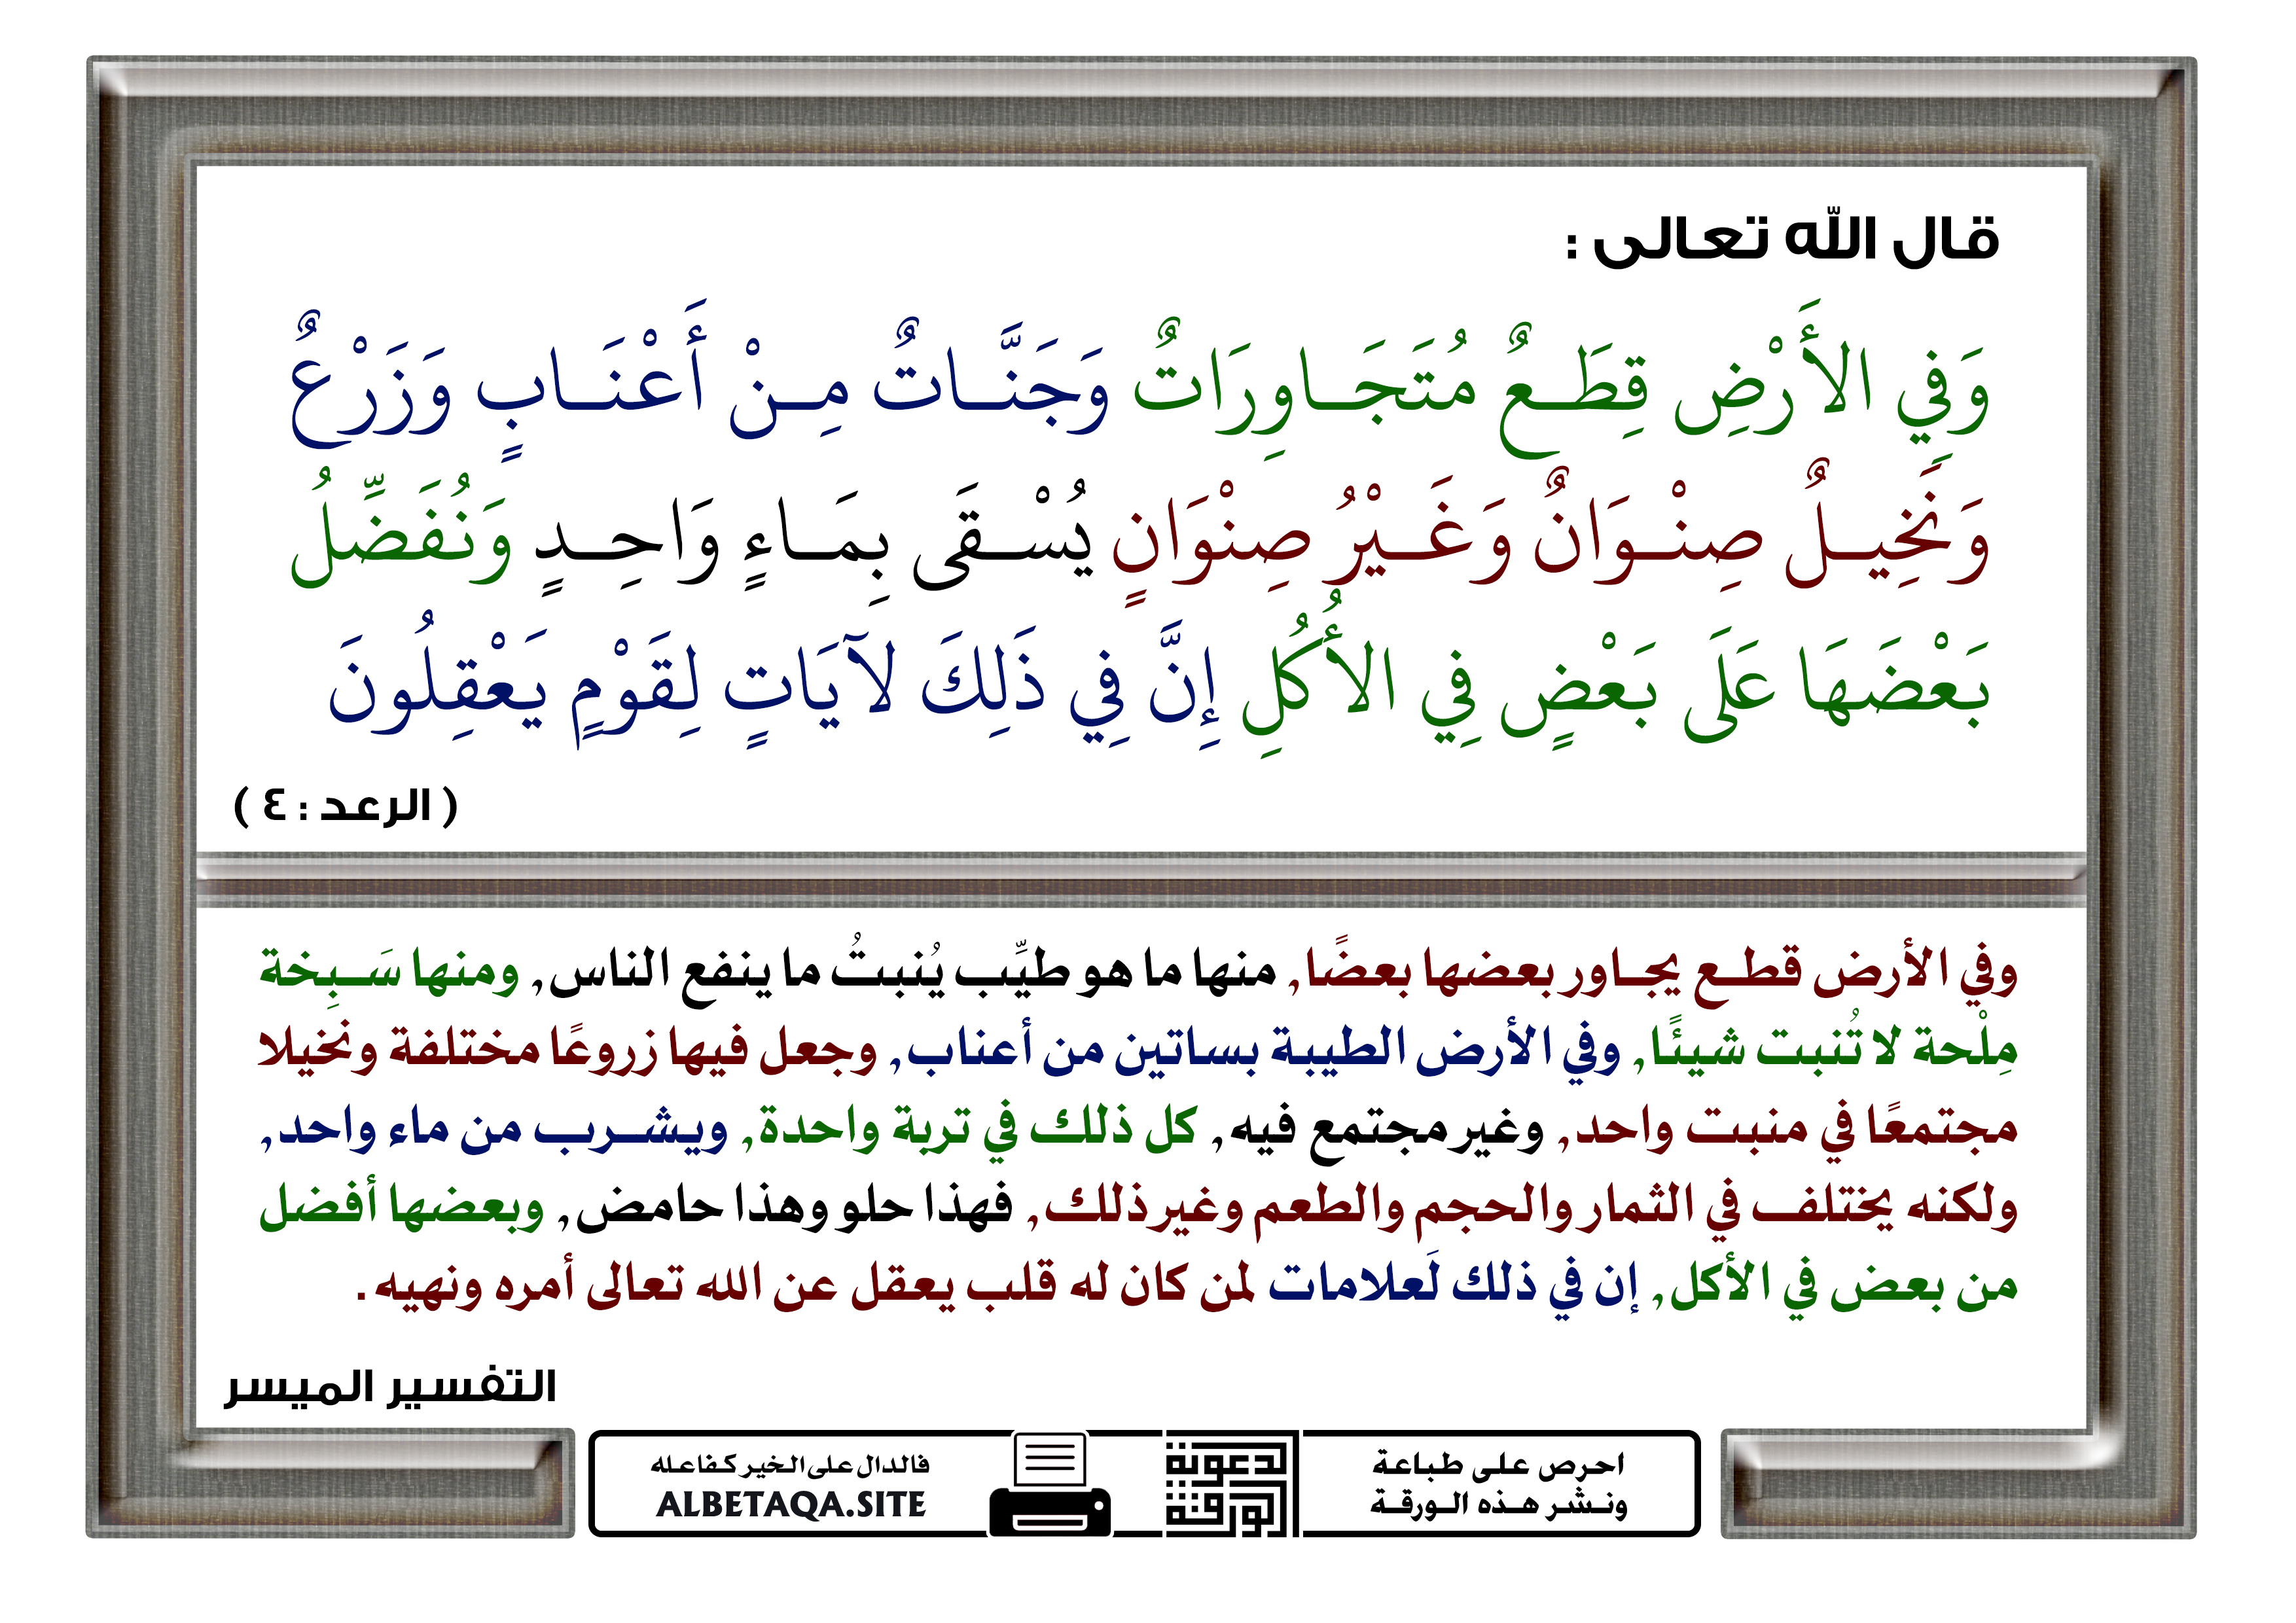 قال الله تعالى :
وَفِي الأَرْضِ قِطَعٌ مُتَجَاوِرَاتٌ وَجَنَّاتٌ مِنْ أَعْنَابٍ وَزَرْعٌ
وَنَخِيلٌ صِنْوَانٌ وَغَيْرُ صِنْوَانٍ يُسْقَى بِمَاءٍ وَاحِدٍ وَنُفَضِّلُ
بَعْضَهَا عَلَى بَعْضٍ فِي الأُكُلِ إِنَّ فِي ذَلِكَ لآيَاتٍ لِقَوْمٍ يَعْقِلُونَ
( الرعد : ٤ )
وفي الأرض قطع يجاور بعضها بعضًا, منها ما هو طيِّب يُنبتُ ما ينفع الناس, ومنها سَبِخة
مِلْحة لا تُنبت شيئًا, وفي الأرض الطيبة بساتين من أعناب, وجعل فيها زروعًا مختلفة ونخيلا
مجتمعًا في منبت واحد, وغير مجتمع فيه, كل ذلك في تربة واحدة, ويشرب من ماء واحد,
ولكنه يختلف في الثمار والحجم والطعم وغير ذلك, فهذا حلو وهذا حامض, وبعضها أفضل
من بعض في الأكل, إن في ذلك لَعلامات لمن كان له قلب يعقل عن الله تعالى أمره ونهيه .
التفسير الميسر
احرص على طباعة
ونشر هذه الورقة
الورقة
الدعوية
فالدال على الخير كفاعله
ALBETAQA.SITE